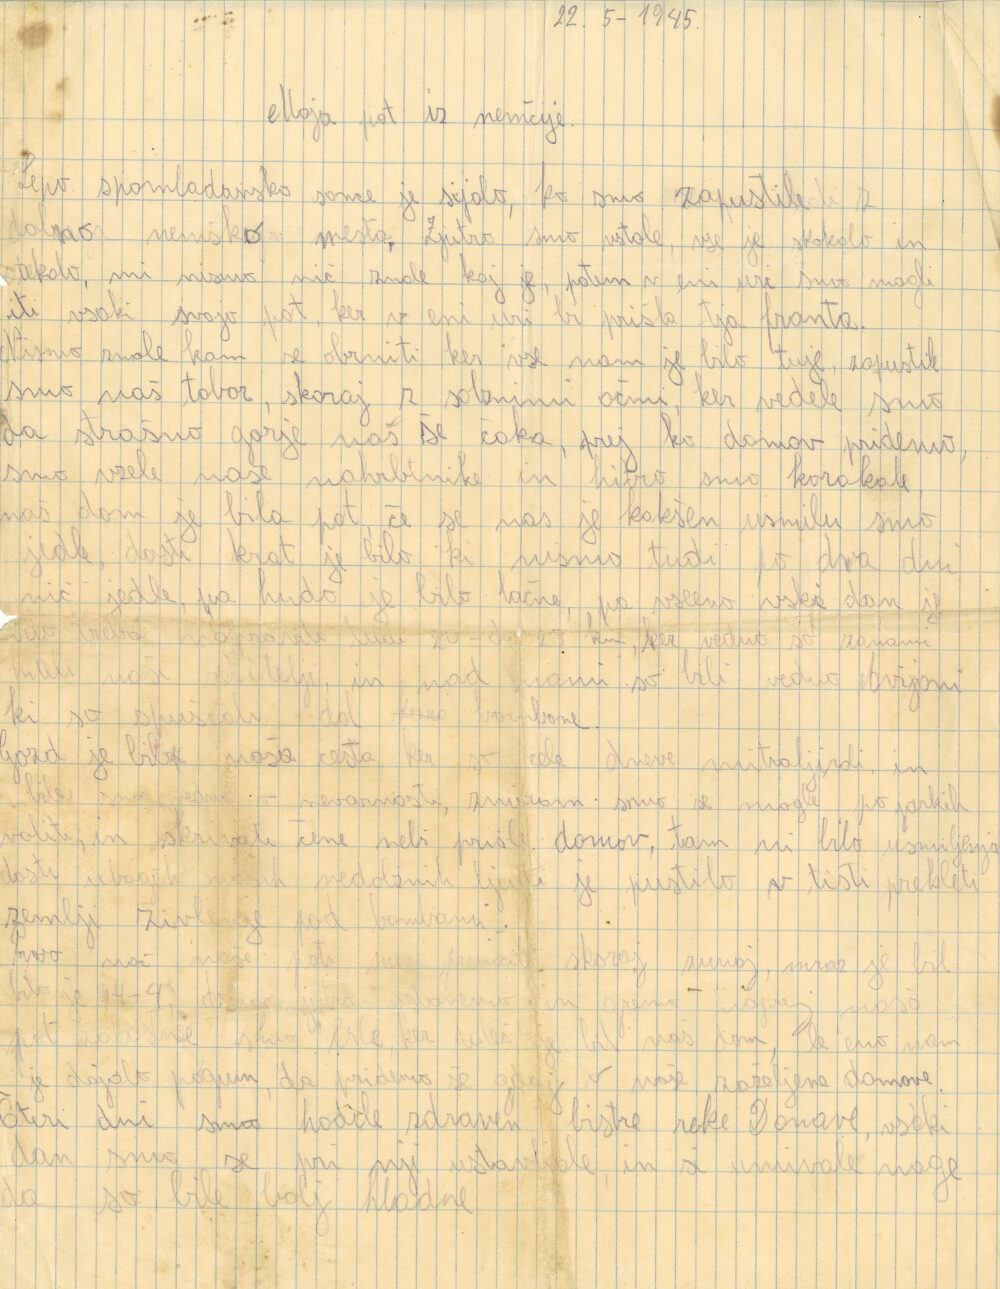 22. 5 - 1945.
Moja pot iz nemčije.
Lepo spomladansko sonce je sijalo, ko smo zapustile z
nemško mesto. Zjutro smo vstale, vse je skakalo in
tekalo, mi nismo nič znale kaj je, potem v eni uri smo mogli
iti vsaki svojo pot, ker v eni uri bi prišla tja fronta.
Nismo znale kam se obrniti ker vse nam je bilo tuje, zapustile
smo naš tabor, skoraj z solznimi očmi, ker vedele smo
da strašno gorje naš še čaka, prej ko domov pridemo,
smo vzele naše nahrbtnike in hitro smo korakale,
naš dom je bila pot, če se nas je kakšen usmilu smo
jedle, dosti krat je bilo ki nismo tudi po dva dni
nič jedle, pa hudo je bilo lačne, pa vseeno vski dan je
treba napraviti 20 - do 27 km, ker vedno so zanami
hiteli naši in nad nami so bili vedno avijoni
ki so spuščali dol bombone.
Gozd je bila naša cesta ker so cele dneve mitralijirali in
bile smo vedno v nevarnosti, zmiram smo se mogle po jarkih
valiti, in skrivati čene nebi prišle domov, tam ni bilo usmiljenja
dosti ubogih naših nedolžnih ljudi je pustilo v tisti prekleti
zemlji življenje pod bombami.
Prvo noč naše poti smo skoraj zunaj, mraz je bil
bilo je 14-4, in gremo naprej našo
pot smo šle, ker daleč je bil naš dom, le eno nam
je dajalo pogum, da pridemo še gdaj v naše zaželjene domove.
Čtiri dni smo hodile zdraven bistre reke Donave, vsaki
dan smo se pri nij ustavljale, in si umivale noge
da so bile bolj hladne